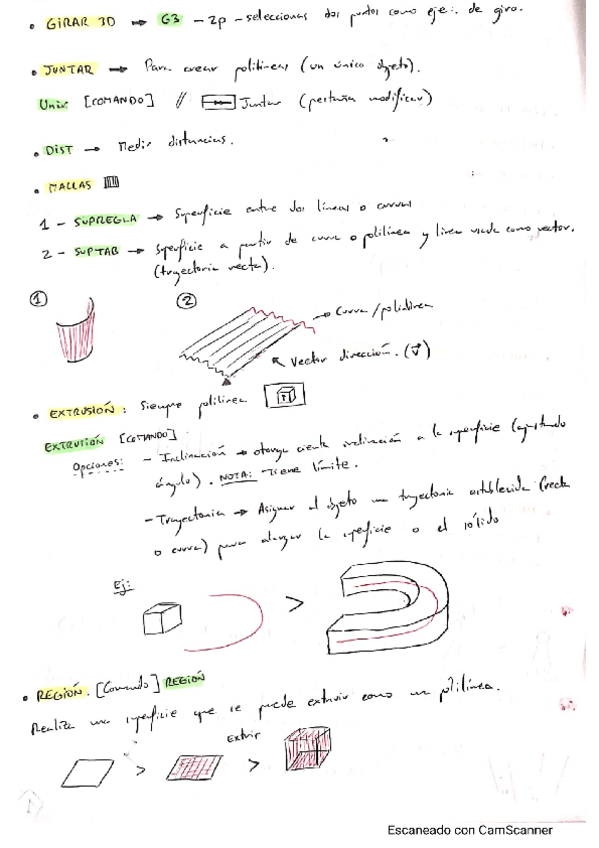 • GIRAR 3D → G3 - 2p - seleccionas dos puntos como eje de giro.
• JUNTAR → Para crear polilíneas (un único objeto).
Unir [COMANDO] // Juntar (pestaña modificar)
• DIST → Medir distancias.
• MALLAS
1 - SUPREGLA → Superficie entre dos líneas o curvas
2 - SUPTAB → Superficie a partir de curva o polilínea y línea usada como vector.
(trayectoria recta).
① ②
→ Curva/polilínea
Vector dirección. (v⃗)
• EXTRUSIÓN: Siempre polilínea
EXTRUSIÓN [COMANDO]
Opciones: - Inclinación → otorga cierta inclinación a la superficie (ajustando
ángulo). NOTA: Tiene límite.
- Trayectoria → Asignar al objeto una trayectoria establecida (recta
o curva) para alargar la superficie o el sólido
Ej:
>
• REGIÓN. [Comando] REGIÓN
Realiza una superficie que se puede extruir como una polilínea.
Extrir
> >
Escaneado con CamScanner